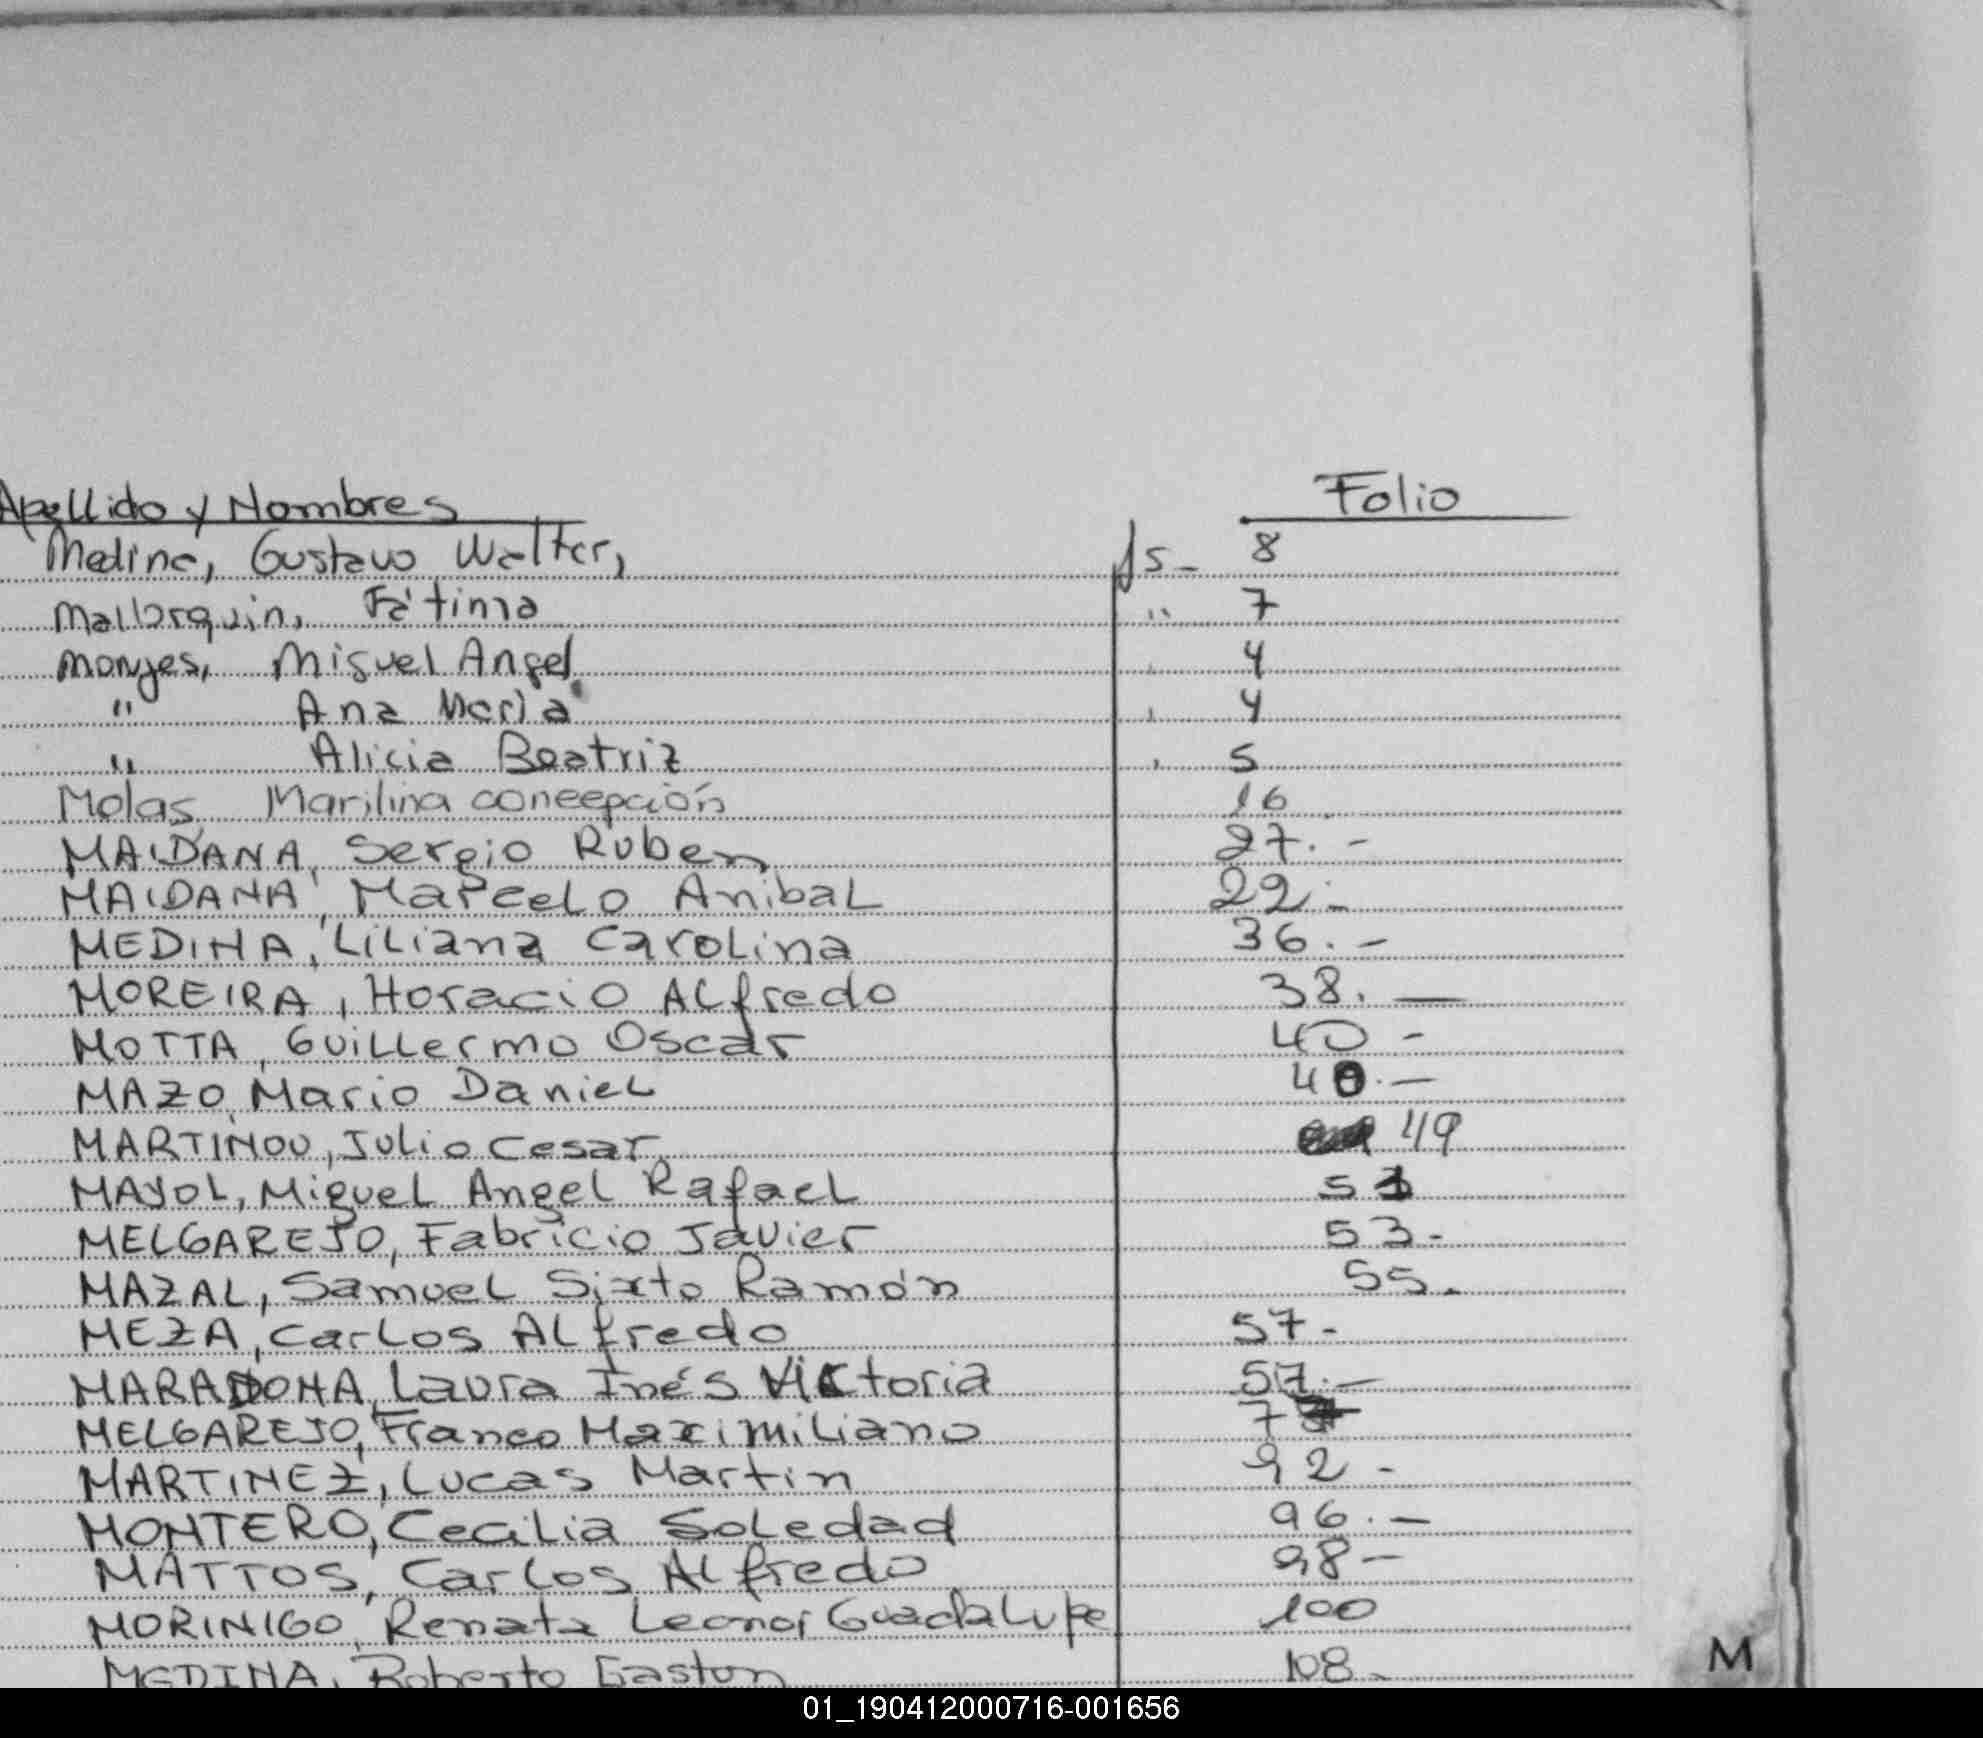 Apellido y Nombres Folio
Medina, Gustavo Walter, fs- 8
Mallorquin, Fátima " 7
Monjes, Miguel Angel " 4
" Ana Maria " 4
" Alicia Beatriz " 5
Molas, Marilina concepción 16
MAIDANA, Sergio Ruben, 27.-
MAIDANA, Marcelo Anibal 22.-
MEDINA, Liliana Carolina 36.-
MOREIRA, Horacio Alfredo 38.-
MOTTA, Guillermo Oscar 40-
MAZO, Mario Daniel 40.-
MARTINOU, Julio Cesar. 49
MAYOL, Miguel Angel Rafael 51
MELGAREJO, Fabricio Javier 53-
MAZAL, Samuel Sixto Ramón 55.
MEZA, Carlos Alfredo 57-
MARADONA, Laura Inés Victoria 57.-
MELGAREJO, Franco Maximiliano
MARTINEZ, Lucas Martin 92-
MONTERO, Cecilia Soledad 96.-
MATTOS, Carlos Alfredo 98-
MORINIGO, Renata Leonor Guadalupe 100
MEDINA, Roberto Gaston 108-
M
01_190412000716-001656